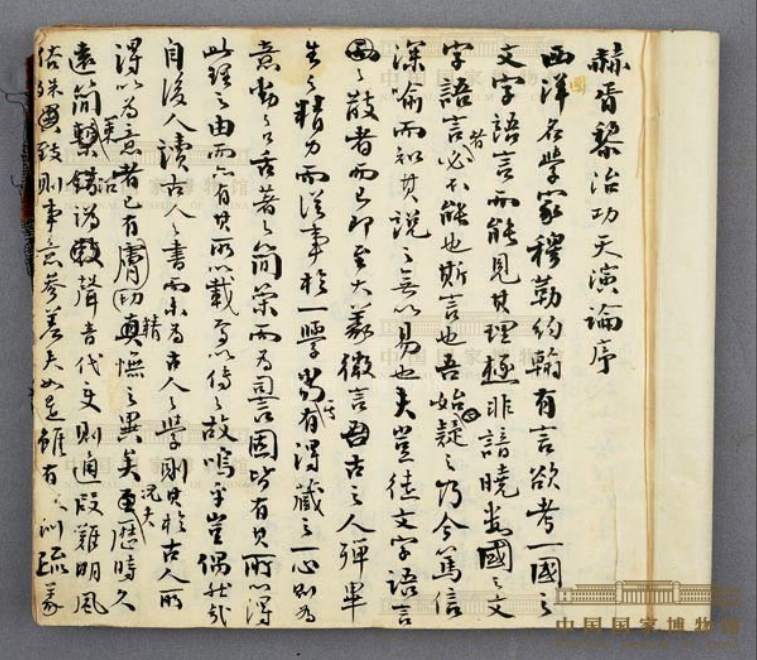 赫胥黎治功天演論序
西洋名學家穆勒約翰有言欲考一國之
文字語言而能見其理極非諳曉數國之文
字語言者必不能也斯言也吾始疑之乃今篤信
深喻而知其說之無以易也夫豈徒文字語言
之散者而已即至大義微言古之人殫畢
生之精力而從事於一學當其有得藏之一心則為
意動之口舌著之簡策而為詞言固皆有其所以得
此理之由而亦有其所以載焉以傳之故嗚乎豈偶然哉
自後人讀古人之書而未為古人之學則其於古人所
得以為意者已有膚切精憮之異矣況夫更歷時久
遠簡策沿譌聲音代变則通叚難明風
俗殊則事意參差夫如是雖有訓疏義
中国国家博物馆